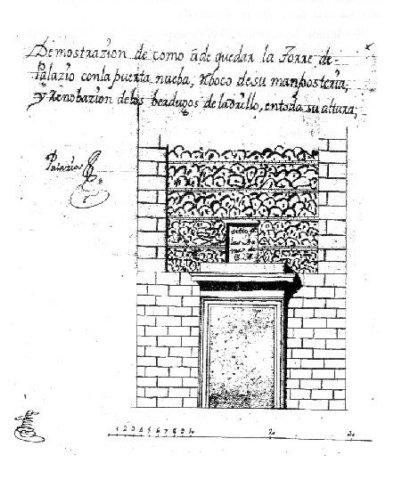 Demostrazion de como ade quedar la Torre de
Palazio conla puerta nueba, Rboco de su manposteria,
y Renobazion delos berdugos de ladrillo, entoda su altura,
Palazios
1 2 3 4 5 6 7 8 9 10 20 30